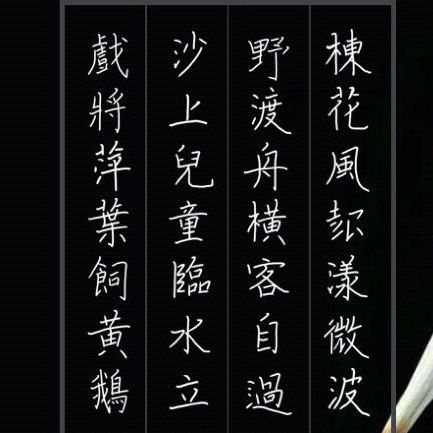 楝花風起漾微波
野渡舟橫客自過
沙上兒童臨水立
戲將萍葉飼黃鵝